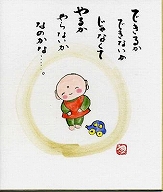 できるか
できないか
じゃなくて
やるか
やらないか
なのかな……。